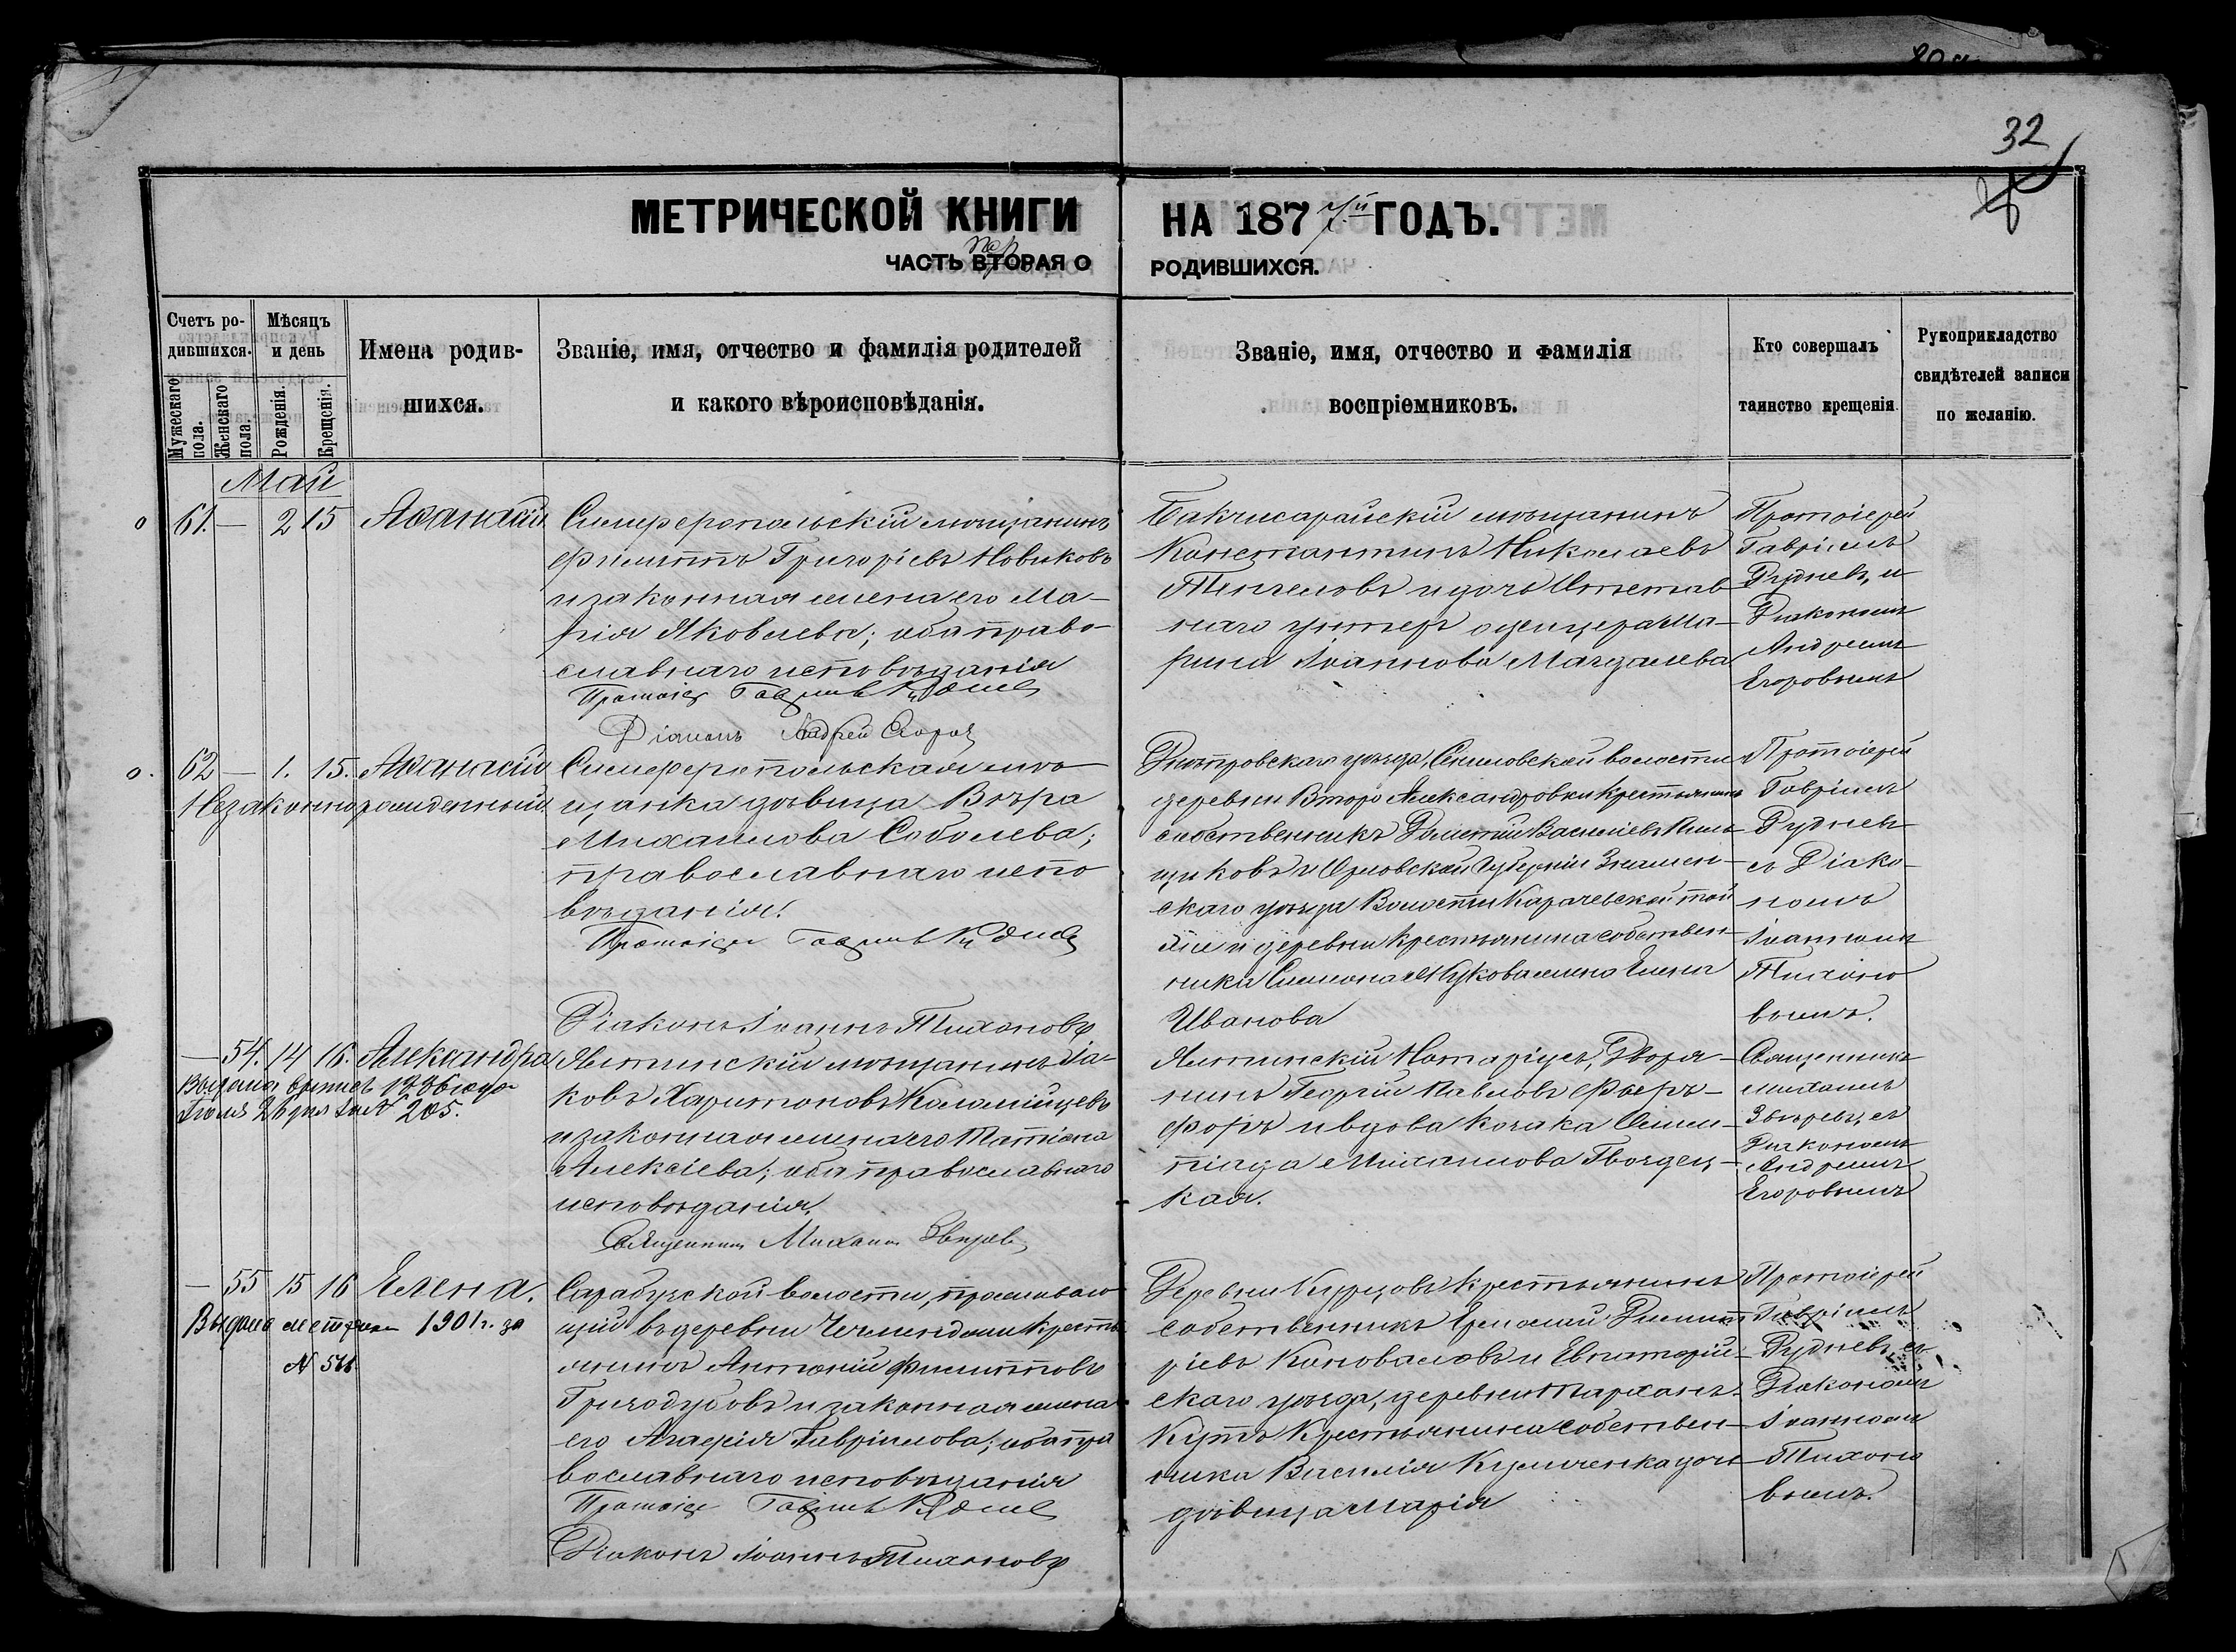 32
МЕТРИЧЕСКОЙ КНИГИ НА 187 ГОДЪ.
ЧАСТЬ ВТОРАЯ О РОДИВШИХСЯ.
пер
Счетъ ро-
дившихся.
Мужескаго
пола.
Женскаго
пола.
Мѣсяцъ
и день
Рожденія.
Крещенія.
Имена родив-
шихся.
Званіе, имя, отчество и фамилія родителей
и какого вѣроисповѣданія.
Званіе, имя, отчество и фамилія
воспріемниковъ.
Кто совершалъ
таинство крещенія.
Рукоприкладство
свидѣтелей записи
по желанію.
Май
61. — 2 15 Аѳанасій
Симферопольскій мѣщанинъ
Филиппъ Григорієвъ Новиковъ
и законная жена его Ма-
рія Яковлева; оба право-
славнаго исповѣданія
Протоіер Гавріилъ Руднев
Діаконъ Андрей Егоров
Бакчисарайскій мѣщанинъ
Константинъ Николаевъ
и дочь Отстав
наго унтеръ офицера Ма-
рина Іоаннова
Протоіерей
Гавріилъ
Рудневъ, и
Діакономъ
Андреемъ
Егоровымъ
62 — 1. 15. Аѳанасій
Незаконнорожденный.
Симферопольская мѣ-
щанка дѣвица Вѣра
Михаилова Соболева;
православнаго испо
вѣданія.
Протоіер Гавріилъ Руднев
Діаконъ Іоаннъ Тихоновъ
Днѣпровскаго уѣзда, волости
деревни Второ Александровки Крестьянинъ
собственникъ Василіевъ
щиковъ и Орловской Губерніи
скаго уѣзда Волости Карачевской той
же и деревни Крестьянина собствен-
ника Симеона жена Елена
Иванова
Протоіерей
Гавріилъ
Рудневъ
съ Діако-
номъ
Іоанномъ
Тихоно
вымъ.
— 54. 14 16. Александра
Выдана 1886 года
Іюля 26 дня за № 205.
Ялтинскій мѣщанинъ Іа-
ковъ Харитоновъ Коломійцевъ
и законная жена его Татіана
Алексіева; оба православнаго
исповѣданія.
Священникъ Михаилъ Звѣревъ
Ялтинскій Нотаріусъ, Дворя-
нинъ Георгій Павловъ
и вдова Олим-
піада Михаилова Гвоздец-
кая.
Священникъ
Михаилъ
Звѣревъ, съ
Діакономъ
Андреемъ
Егоровымъ
— 55 15 16 Елена.
Выдано метрика 1901 г. за
№ 511
Сарабузской волости, прожываю
щій въ деревни Крестья
янинъ Антоній Филипповъ
Григодубовъ и законная жена
его Агафія Гавріилова; оба пра
вославнаго исповѣданія
Протоіер Гавріилъ Руднев
Діаконъ Іоаннъ Тихоновъ
Деревни Курцовъ Крестьянинъ
собственникъ Димит
ріевъ Коноваловъ и Евпаторій-
скаго уѣзда, деревни Тарханъ
Кутъ Крестьянина собствен-
ника Василія дочь
дѣвица Марія
Протоіерей
Гавріилъ
Рудневъ, съ
Діакономъ
Іоанномъ
Тихоно
вымъ.